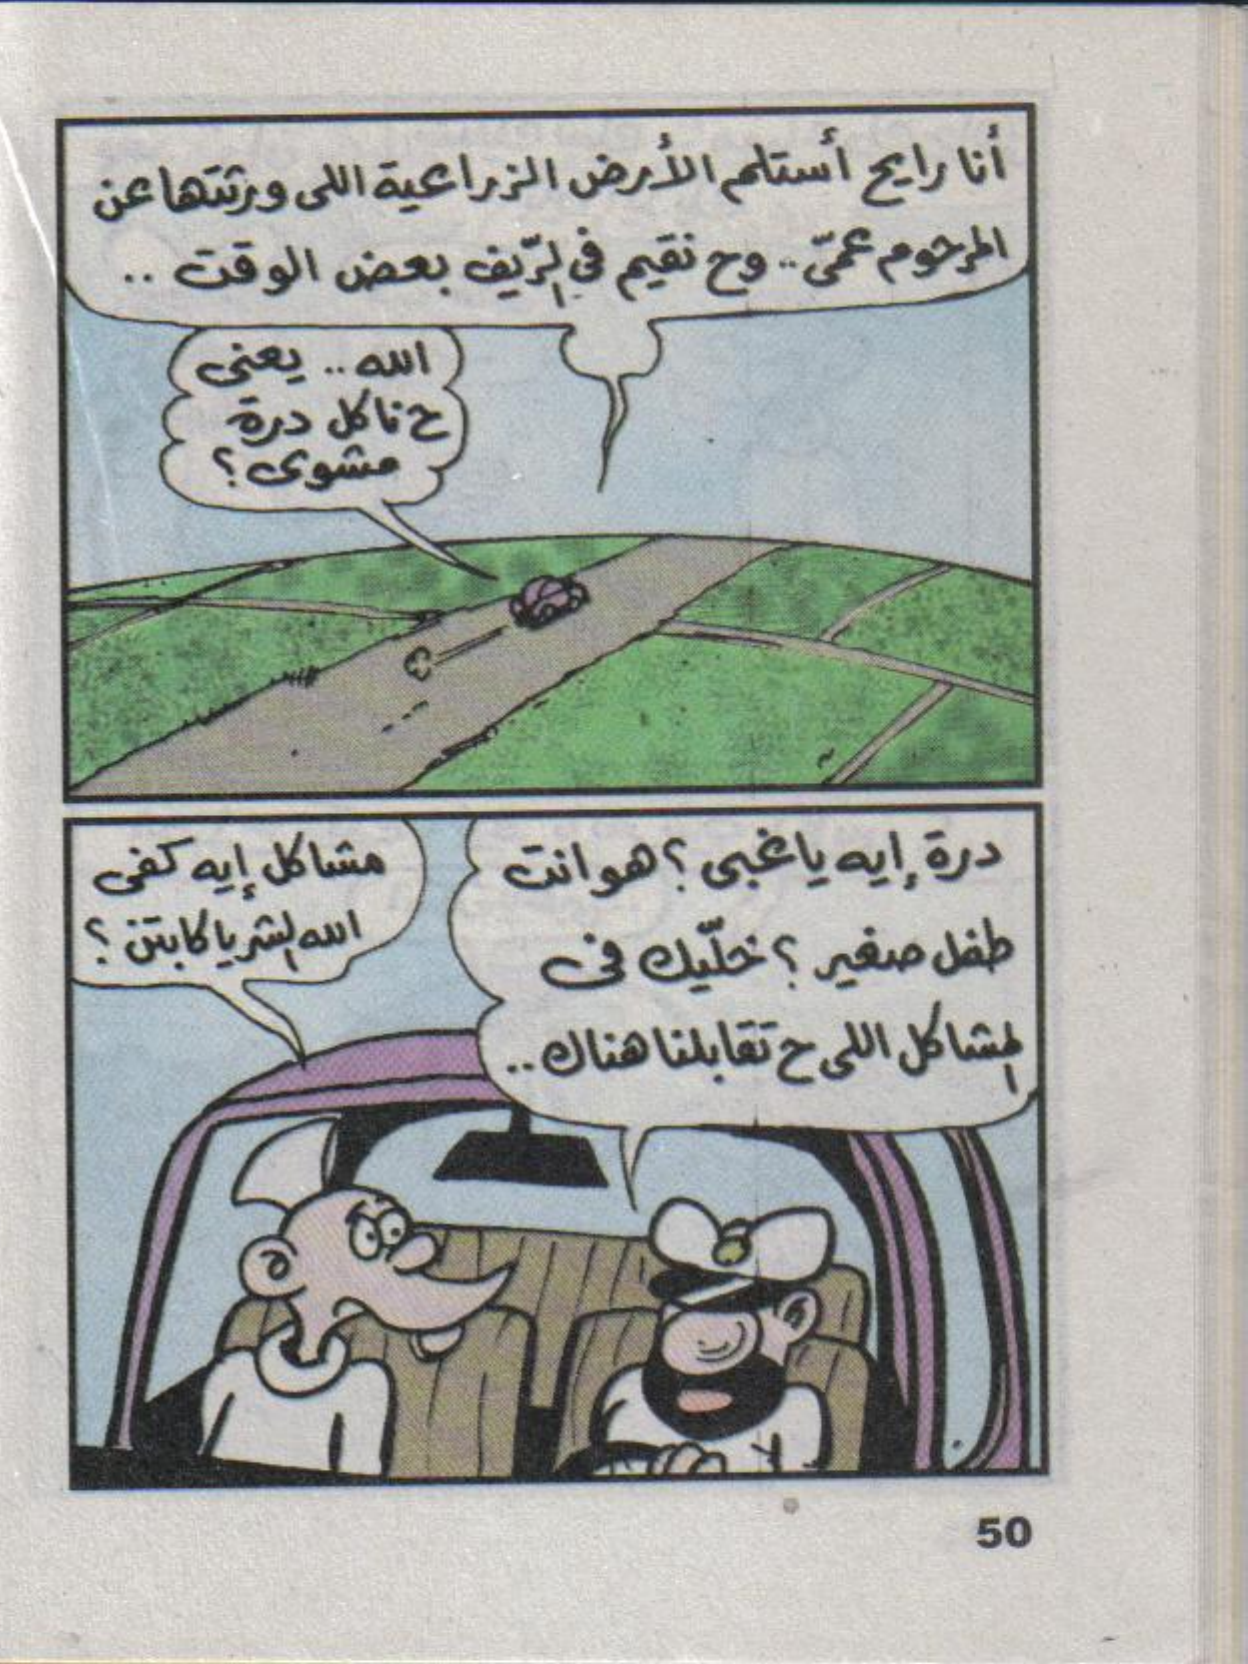 أنا رايح أستلم الأرض الزراعية اللى ورثتها عن
المرحوم عمّى .. وح نقيم فى الرّيف بعض الوقت ..
الله .. يعنى
ح ناكل درة
مشوى ؟
درة إيه ياغبى ؟ هو انت
طفل صغير ؟ خلّيك فى
المشاكل اللى ح تقابلنا هناك ..
مشاكل إيه كفى
الله الشر يا كابتن ؟
50